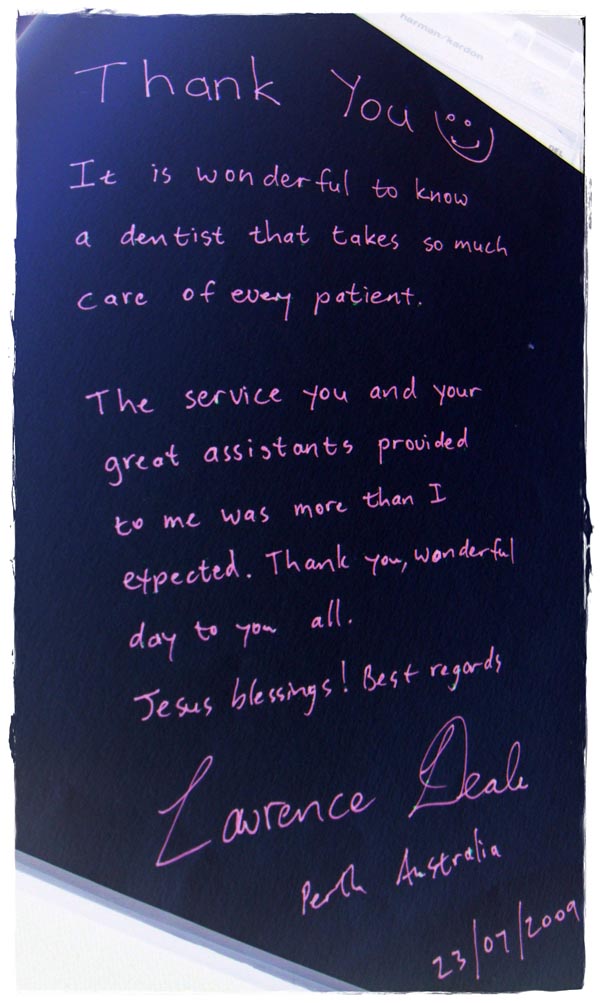 harman/kardon
Thank You
It is wonderful to know
a dentist that takes so much
care of every patient.
The service you and your
great assistants provided
to me was more than I
expected. Thank you, wonderful
day to you all.
Jesus blessings! Best regards
Lawrence
Perth Australia
23/07/2009